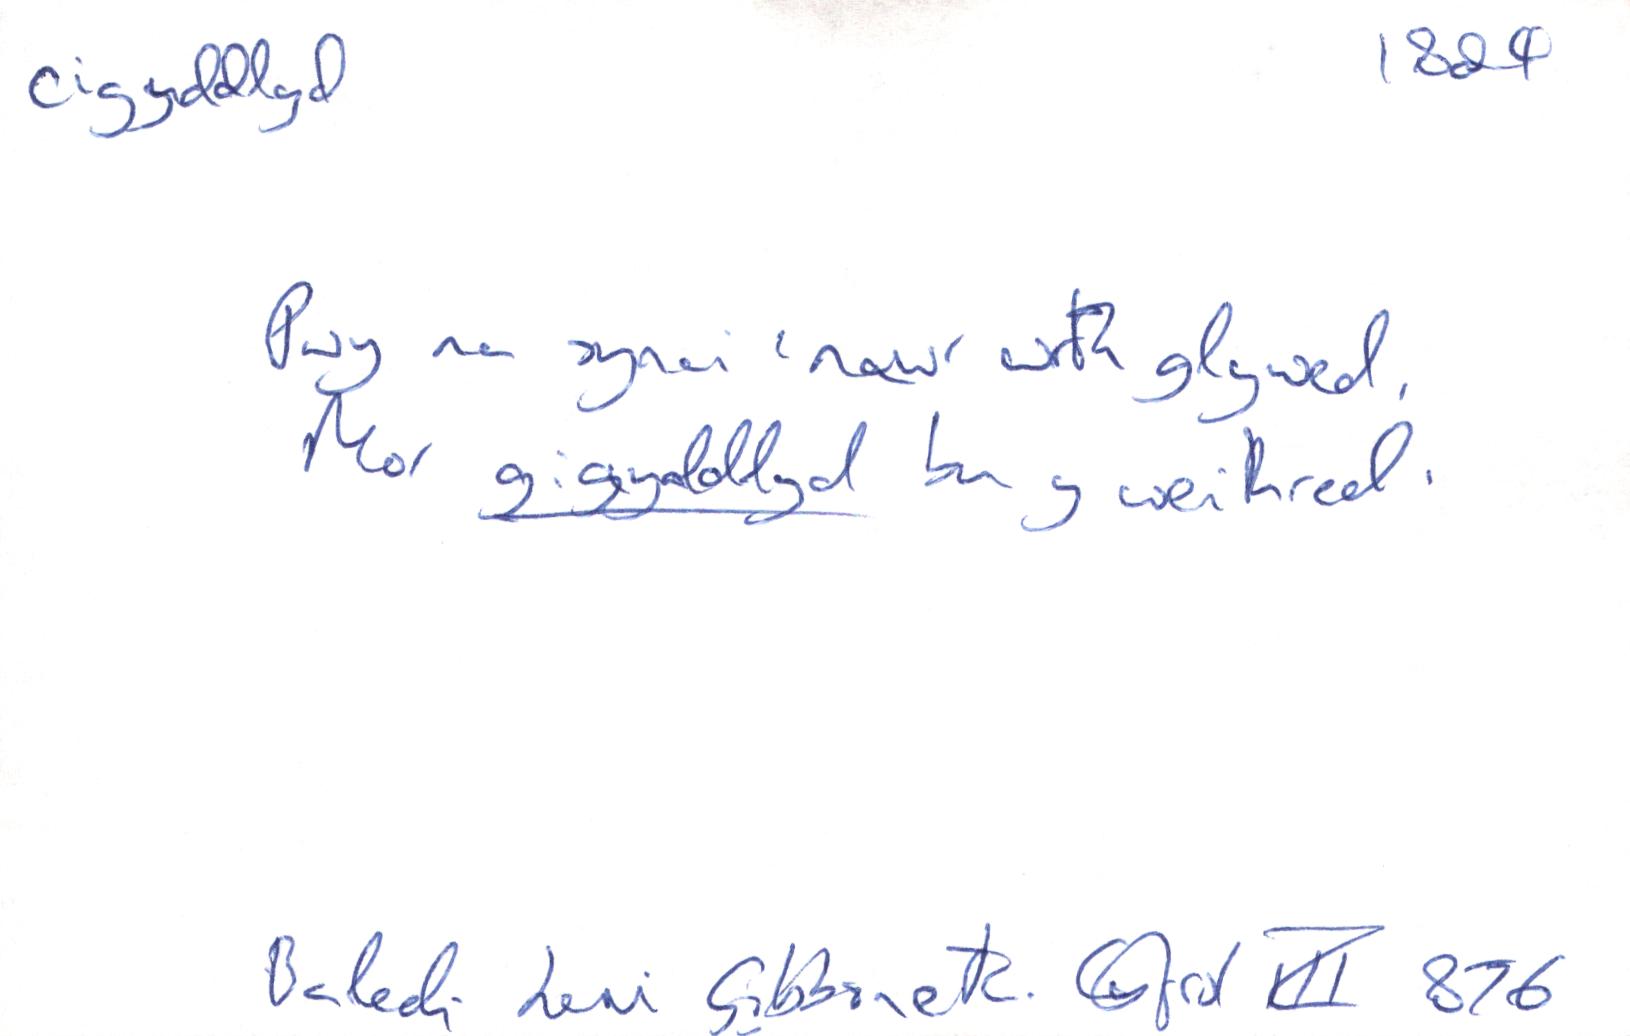 cigyddlyd 1824
Pwy na synai 'nawr wrth glywed,
Mor gigyddlyd bu y weithred.
Baledi Levi Gibbon etc. Cyfrol VII 876